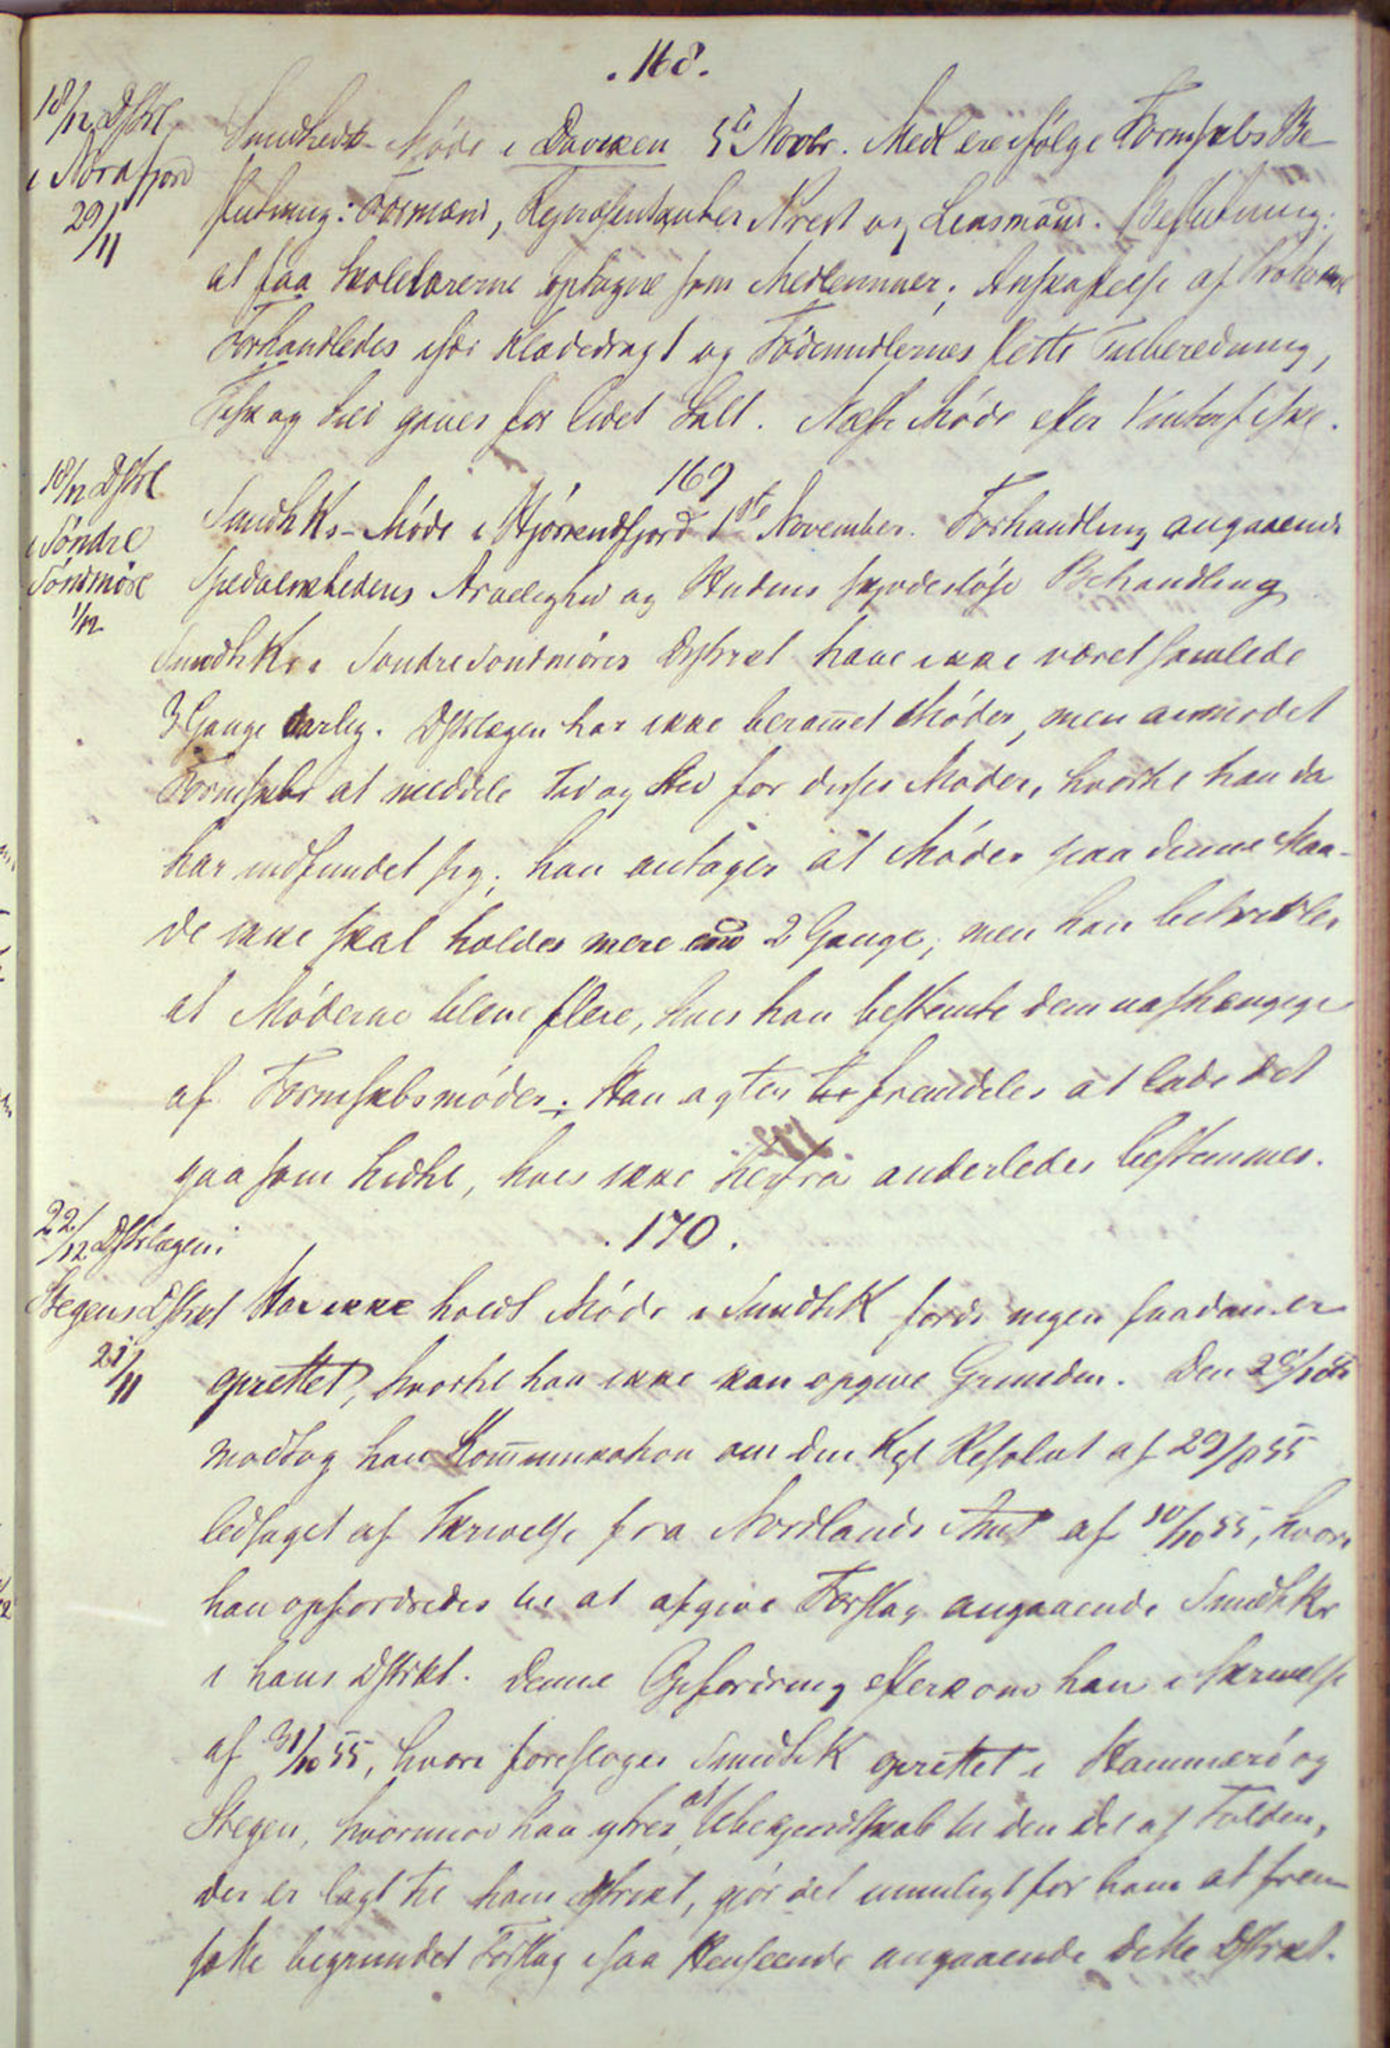 .168.
18/12 Dstrl
i Nordfjord
29/11
Sundheds-Møde i Daviken 5te Novbr. Medl ere ifølge Formskbs Be-
slutning: Formænd, Repræsentanter Præst og Lensmænd. Beslutning:
at faa Skolelærerne optagne som Medlemmer; Anskaffelse af Protocol
Forhandledes især Klædedragt og Fødemidlernes slette Tilberedning,
Fisk og Sild gives for lidet Salt. Næste Møde efter Vinterfiske.
169
18/12 Dstrl
i Søndre
Søndmøre
1/12
SundhKs-Møde i Hjørrendfjord 1ste November. Forhandling angaaende
Spedalskhedens Arvelighed og Hudens skjødesløse Behandling
SundhKs i Søndre Søndmøres Distrikt have ikke været samlede
3 Gange aarlig. Dstrlægen har ikke berammet Møder, men anmodet
Formskbt at meddele Tid og Sted for disses Møder, hvortil han da
har indfundet sig; han antager at Møder paa denne Maa-
de ikke skal holdes mere end 2 Gange; men han betvivler
at Møderne bleve flere, hvis han bestemte dem uafhængige
af Formskbsmøder; Han agter fremdeles at lade det
gaa som hidtil, hvis ikke herfra anderledes bestemmes.
.170.
22/12 Dstrlægen i
Stegens Dstrkt
21/11
Har ikke holdt Møde i SundhK fordi ingen saadan er
oprettet, hvortil han ikke kan opgive Grunden. Den 28/10 55
modtog han Kommunikation om den Kgl Resolut af 29/8 55
ledsaget af Skrivelse fra Nordlands Amt af 10/10 55, hvori
han opfordredes til at afgive Forslag angaaende SundhKr
i hans Dstrkt. Denne Opfordring efterkom han i Skrivelse
af 31/10 55, hvori foresloges SundhK oprettet i Hammerø og
Stegen, hvorimod han ytrer, at Ubekjendtskab til den Del af Folden,
der er lagt til hans Dstrikt, gjør det umuligt for ham at frem-
sætte begrundet Forslag i saa Henseende angaaende dette Dstrkt.